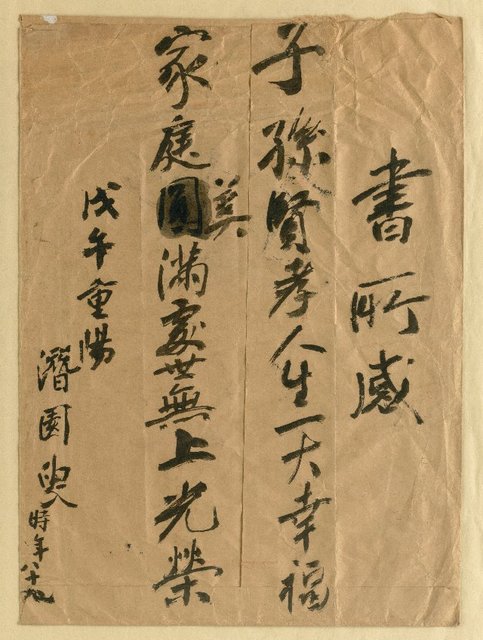 書所感
子孫賢孝人生一大幸福
家庭圓美滿處世無上光榮
戊午重陽
潛園叟時年八十九